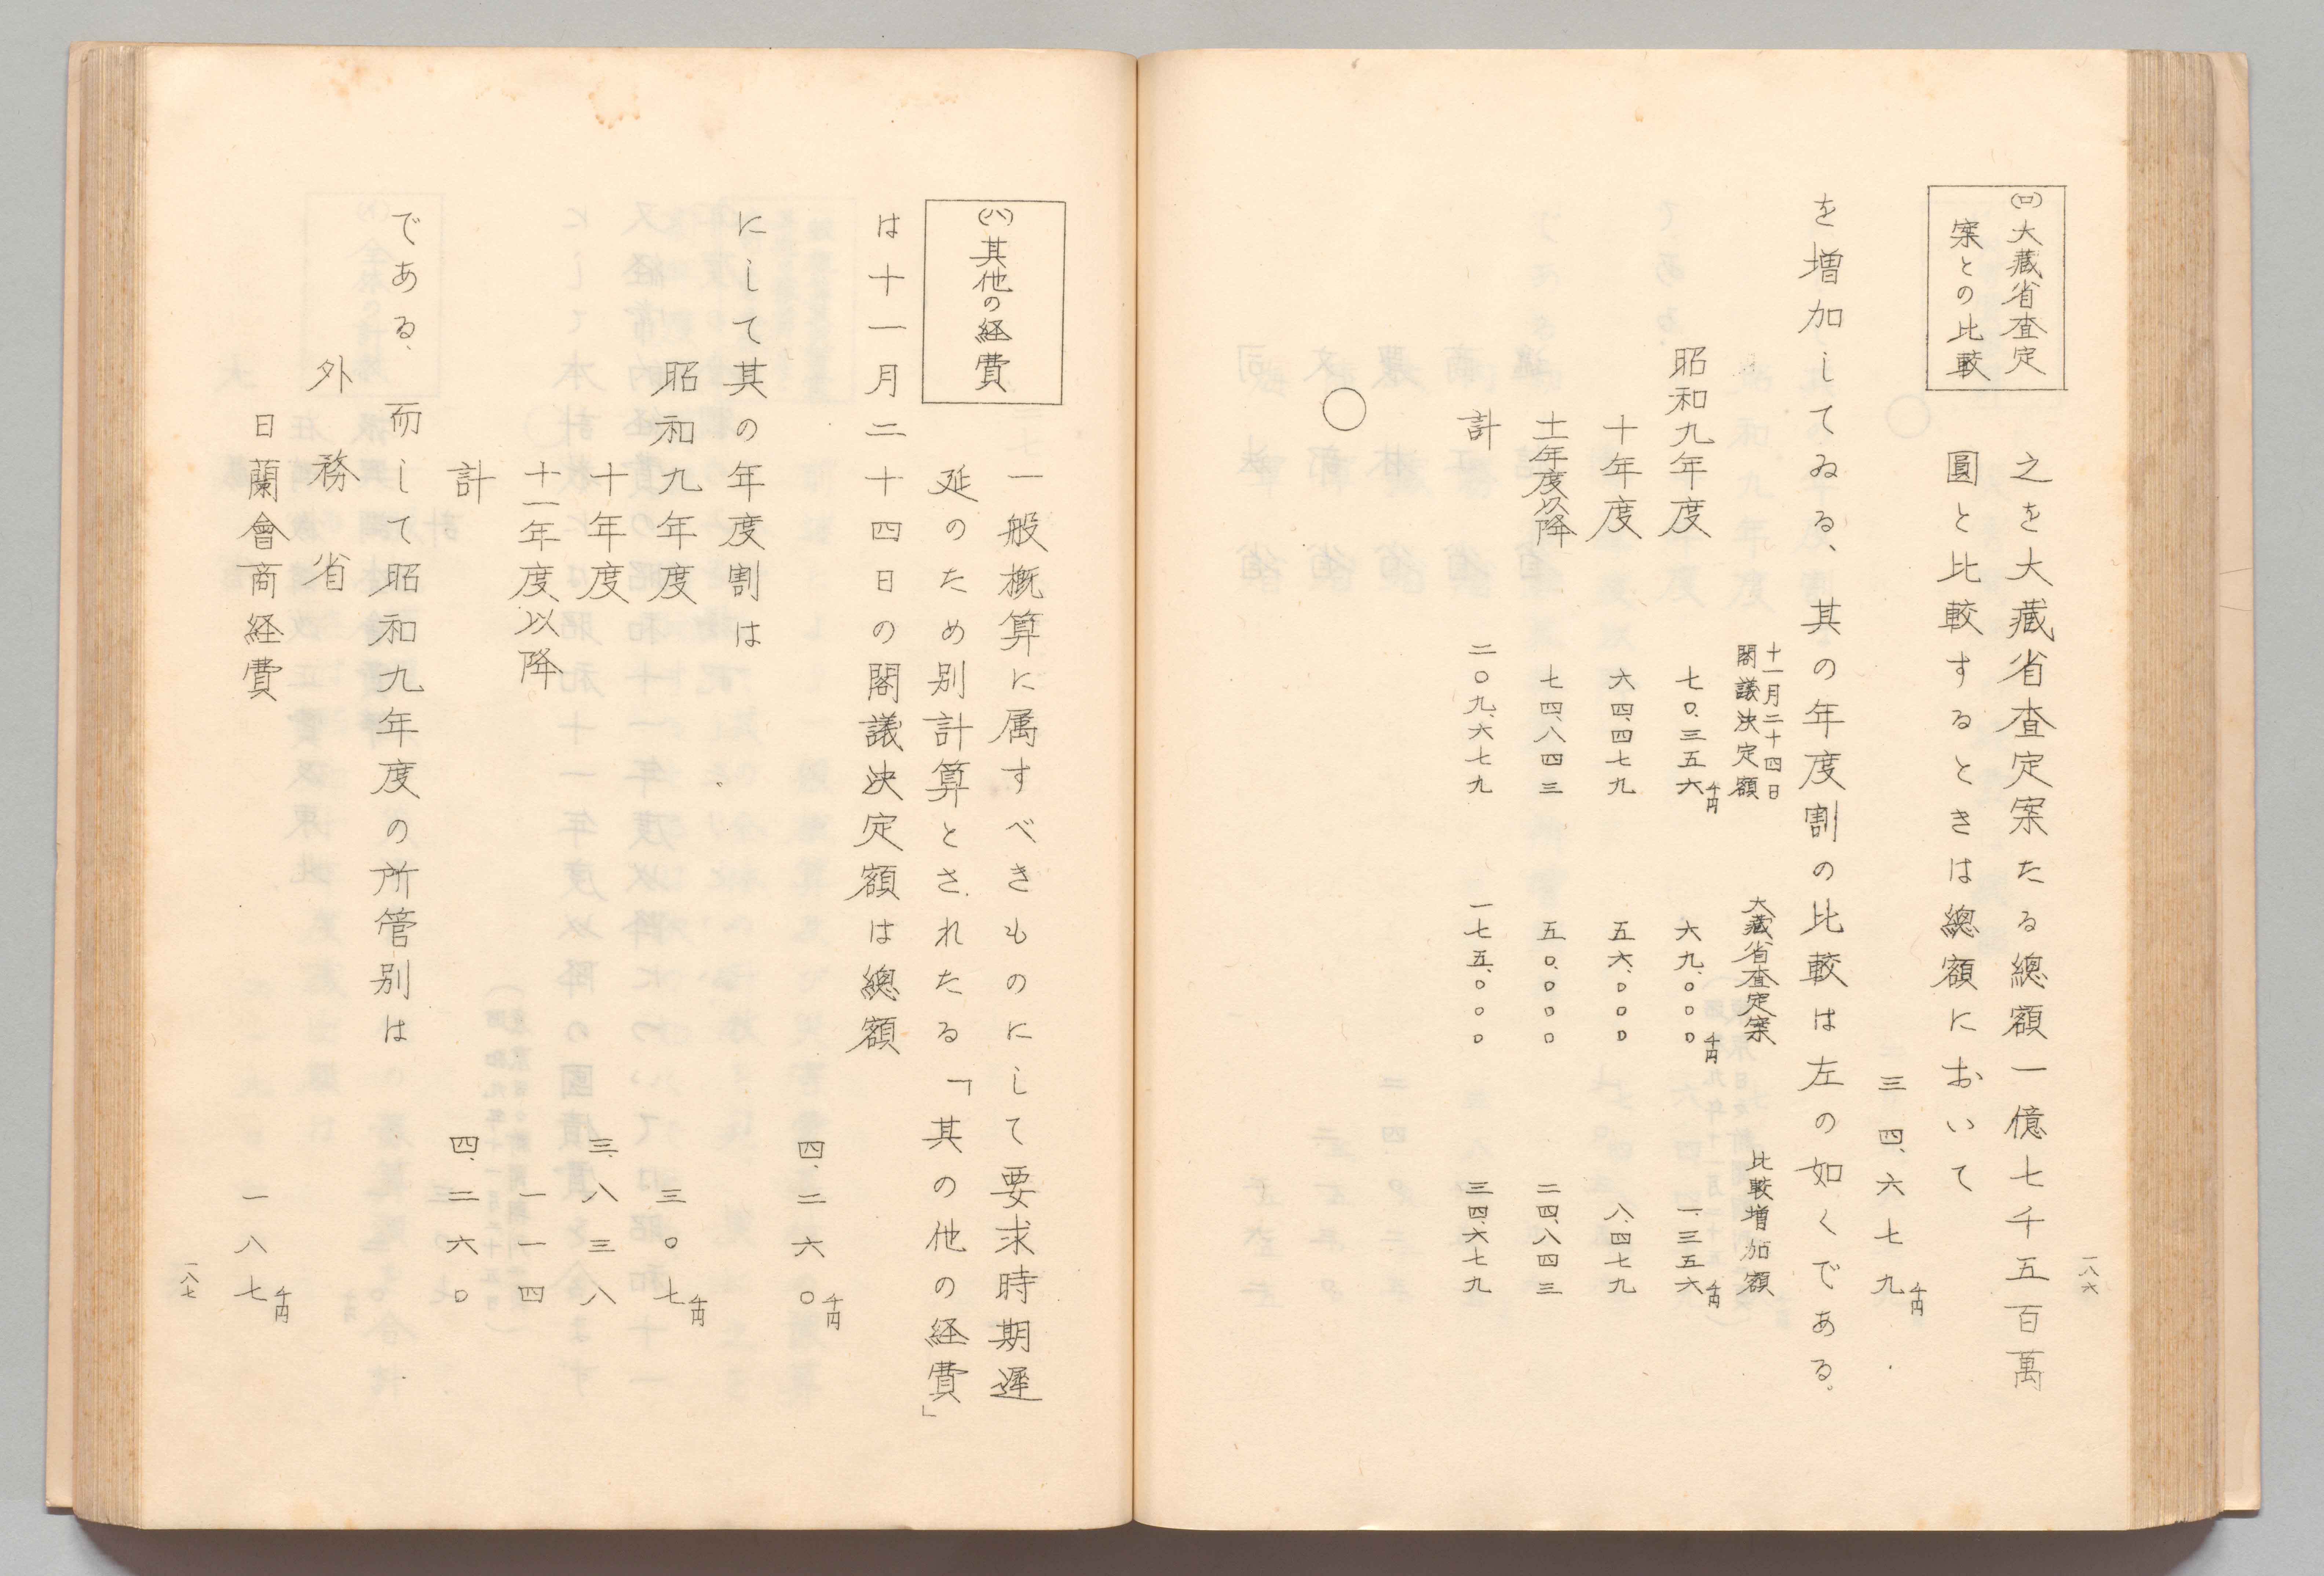 一八六
(ロ)大藏省査定
案との比較
之を大藏省査定案たる總額一億七千五百萬
圓と比較するときは總額において
三四、六七九千円
を増加してゐる、其の年度割の比較は左の如くである。
十一月二十四日
閣議決定額
大藏省査定案
比較増加額
昭和九年度 七〇、三五六千円 六九、〇〇〇千円 一、三五六千円
十年度 六四、四七九 五六、〇〇〇 八、四七九
十一年度以降 七四、八四三 五〇、〇〇〇 二四、八四三
計 二〇九、六七九 一七五、〇〇〇 三四、六七九
○
(ハ)其他の経費
一般概算に属すべきものにして要求時期遲
延のため別計算とされたる「其の他の経費」
は十一月二十四日の閣議決定額は總額
四、二六〇千円
にして其の年度割は
昭和九年度 三〇七千円
十年度 三、八三八
十一年度以降 一一四
計 四、二六〇
である、而して昭和九年度の所管別は
外務省
日蘭會商経費 一八七千円
一八七